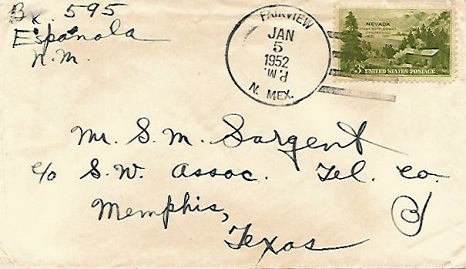 Bx 595
Española
N.M.
FAIRVIEW
JAN
5
1952
P.M.
N. MEX.
NEVADA
3¢ UNITED STATES POSTAGE
Mr. S. M. Sargent
c/o S.W. Assoc. Tel. Co.
Memphis,
Texas